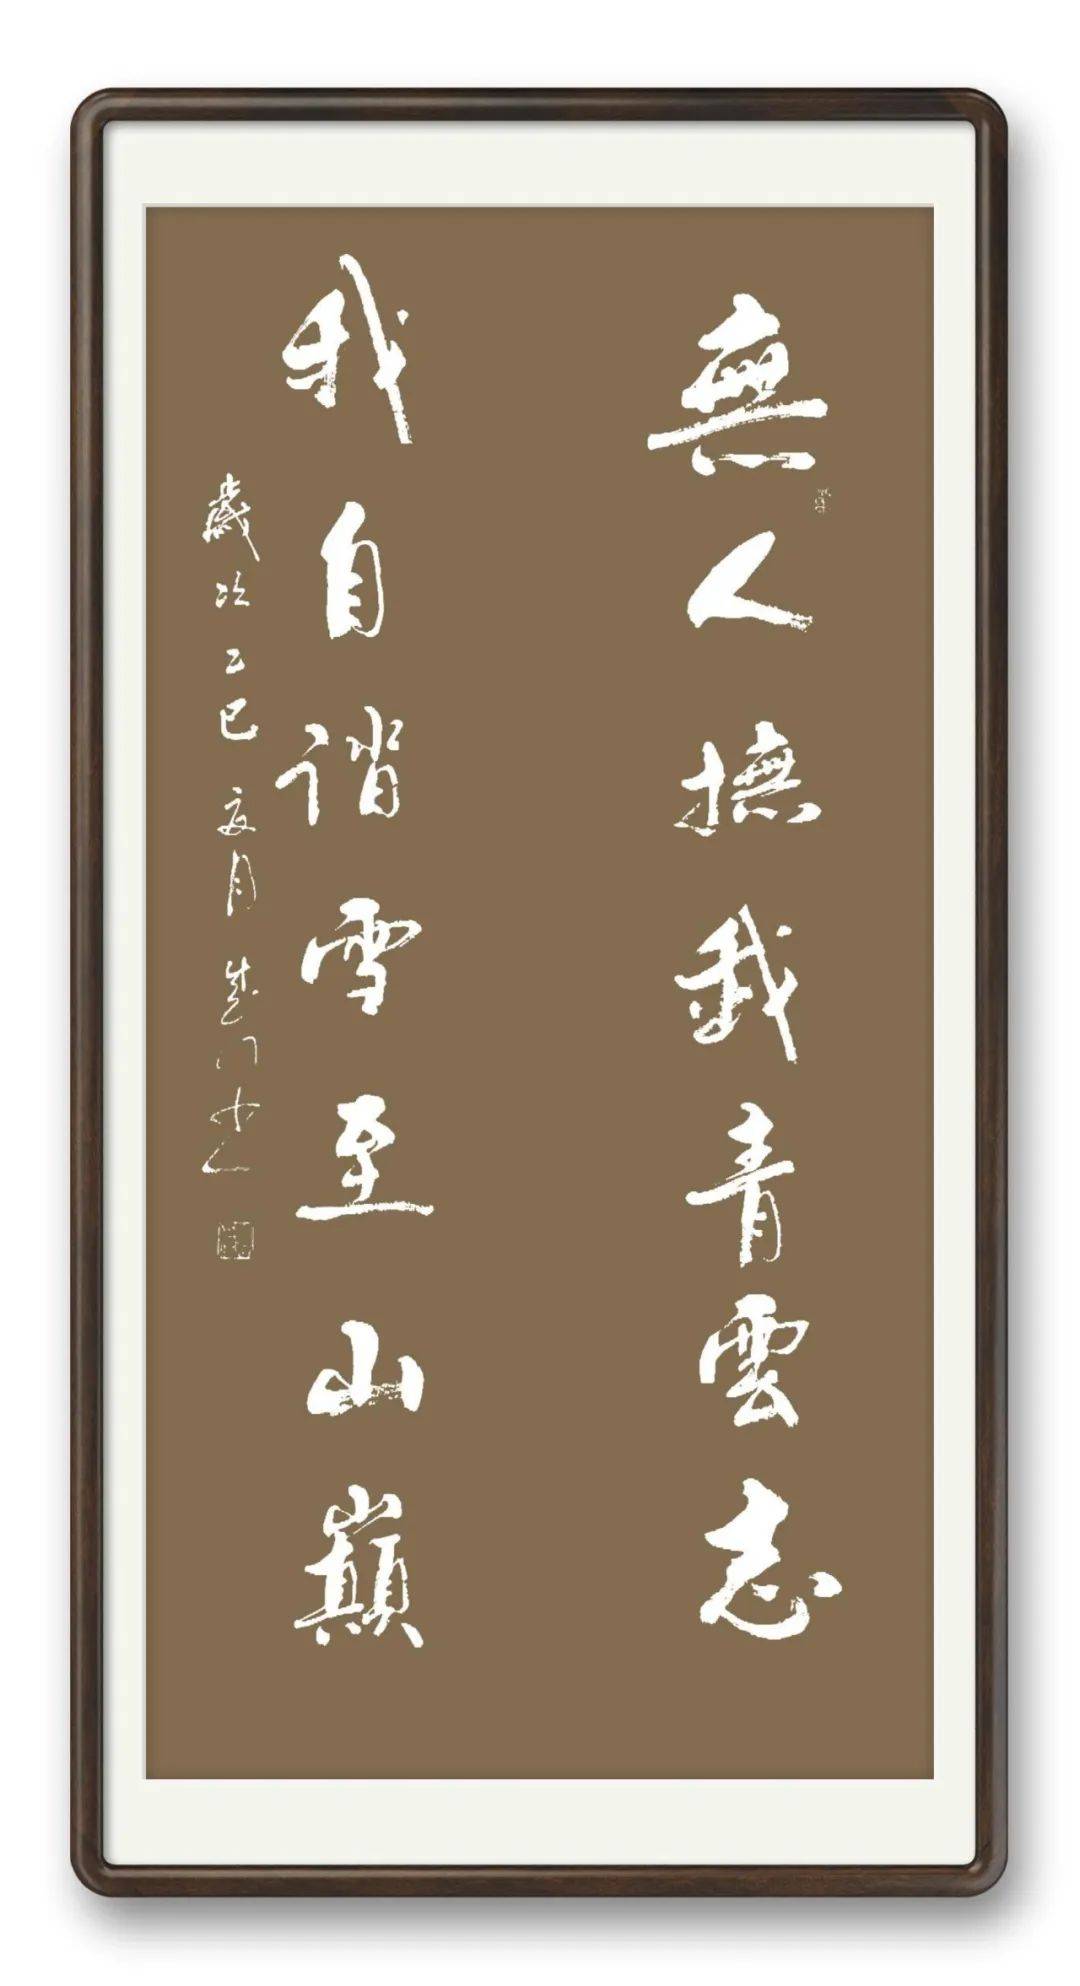 無人撫我青雲志
我自踏雪至山巔
歲次乙巳夏月